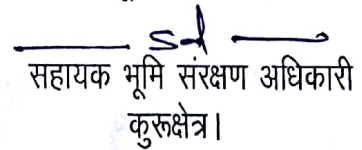 sd
सहायक भूमि संरक्षण अधिकारी
कुरूक्षेत्र।